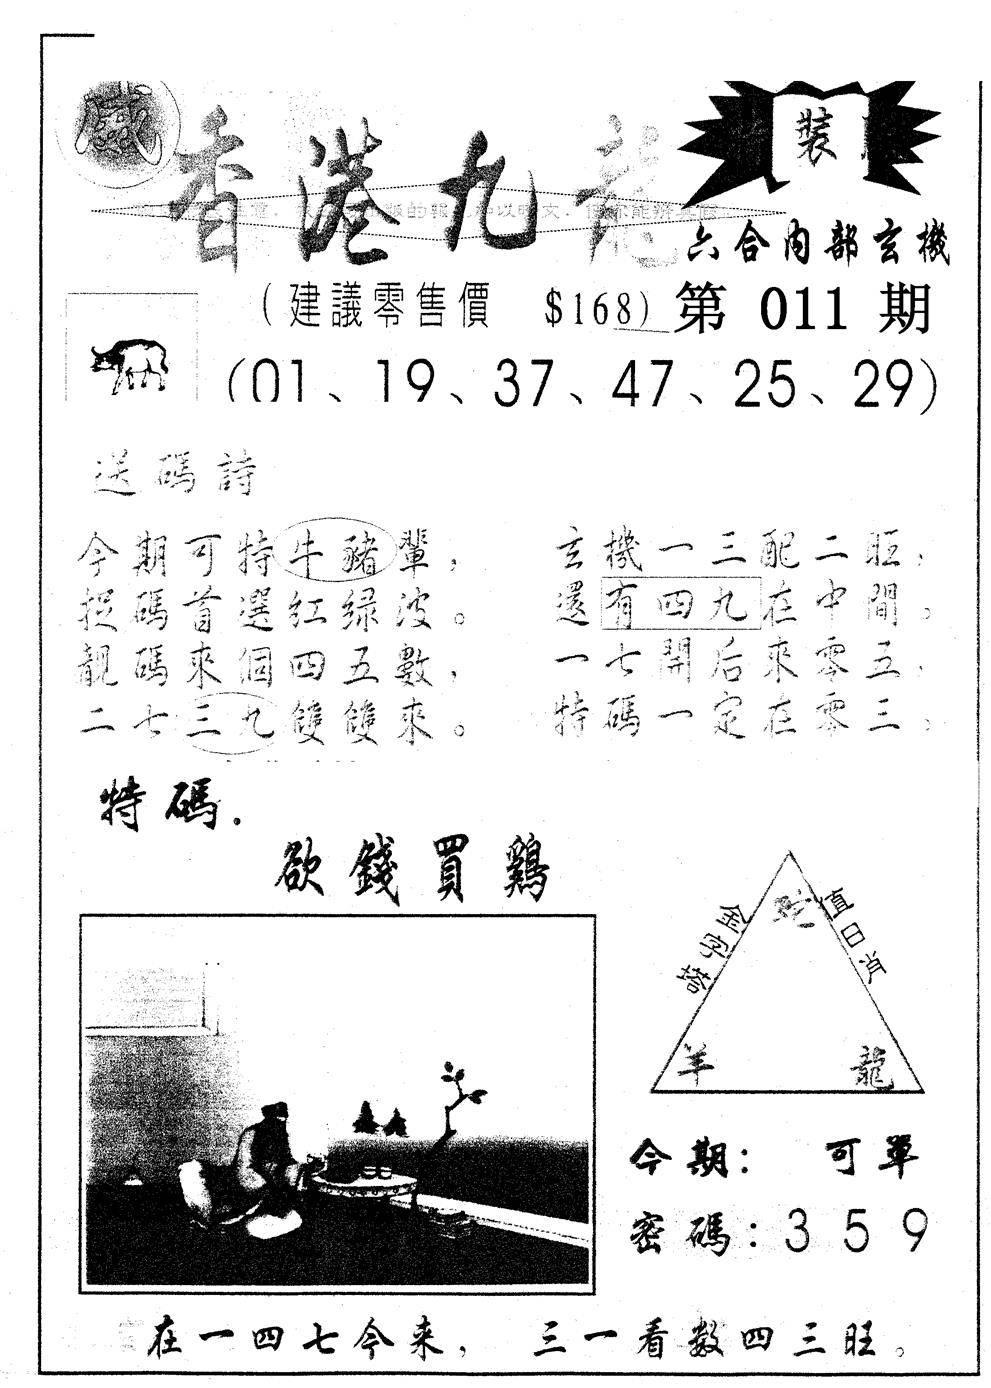 香港九龍
裝
六合内部玄機
(建議零售價 $168) 第 011 期
(01、19、37、47、25、29)
送碼詩
今期可特牛豬輩，
捉碼首選紅绿波。
靚碼來個四五數，
二七三九雙雙來。
玄機一三配二旺，
還有四九在中間。
一七開后來零五，
特碼一定在零三。
特碼.
欲錢買鷄
金字塔
值日肖
蛇
羊 龍
今期： 可單
密碼：359
在一四七今来， 三一看数四三旺。